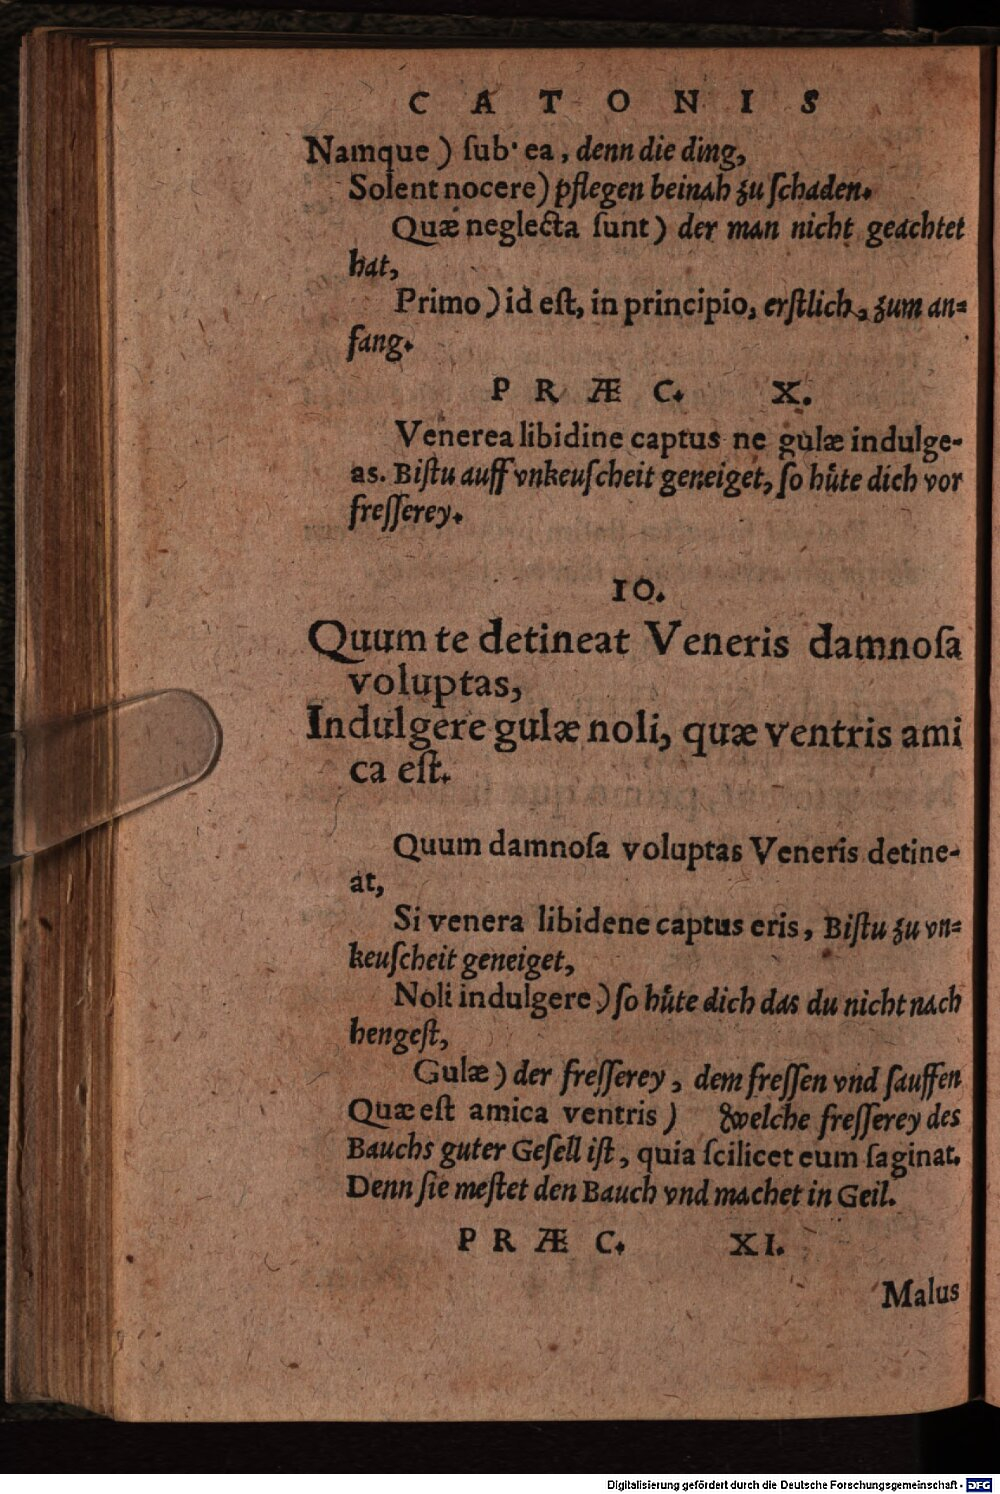 CATONIS
Namque ) ſub' ea, denn die ding,
Solent nocere) pflegen beinah zu ſchaden.
Quæ neglecta ſunt) der man nicht geachtet
hat,
Primo ) id eſt, in principio, erſtlich, zum an=
fang.
PRÆC. X.
Venerea libidine captus ne gulæ indulge-
as. Biſtu auff vnkeuſcheit geneiget, ſo huͤte dich vor
freſſerey.
10.
Quum te detineat Veneris damnoſa
voluptas,
Indulgere gulæ noli, quæ ventris ami
ca eſt.
Quum damnoſa voluptas Veneris detine-
at,
Si venera libidene captus eris, Biſtu zu vn=
keuſcheit geneiget,
Noli indulgere ) ſo huͤte dich das du nicht nach
hengeſt,
Gulæ ) der freſſerey, dem freſſen vnd ſauffen
Quæ eſt amica ventris ) welche freſſerey des
Bauchs guter Geſell iſt, quia ſcilicet eum ſaginat.
Denn ſie meſtet den Bauch vnd machet in Geil.
PRÆC. XI.
Malus
Digitalisierung gefördert durch die Deutsche Forschungsgemeinschaft - DFG